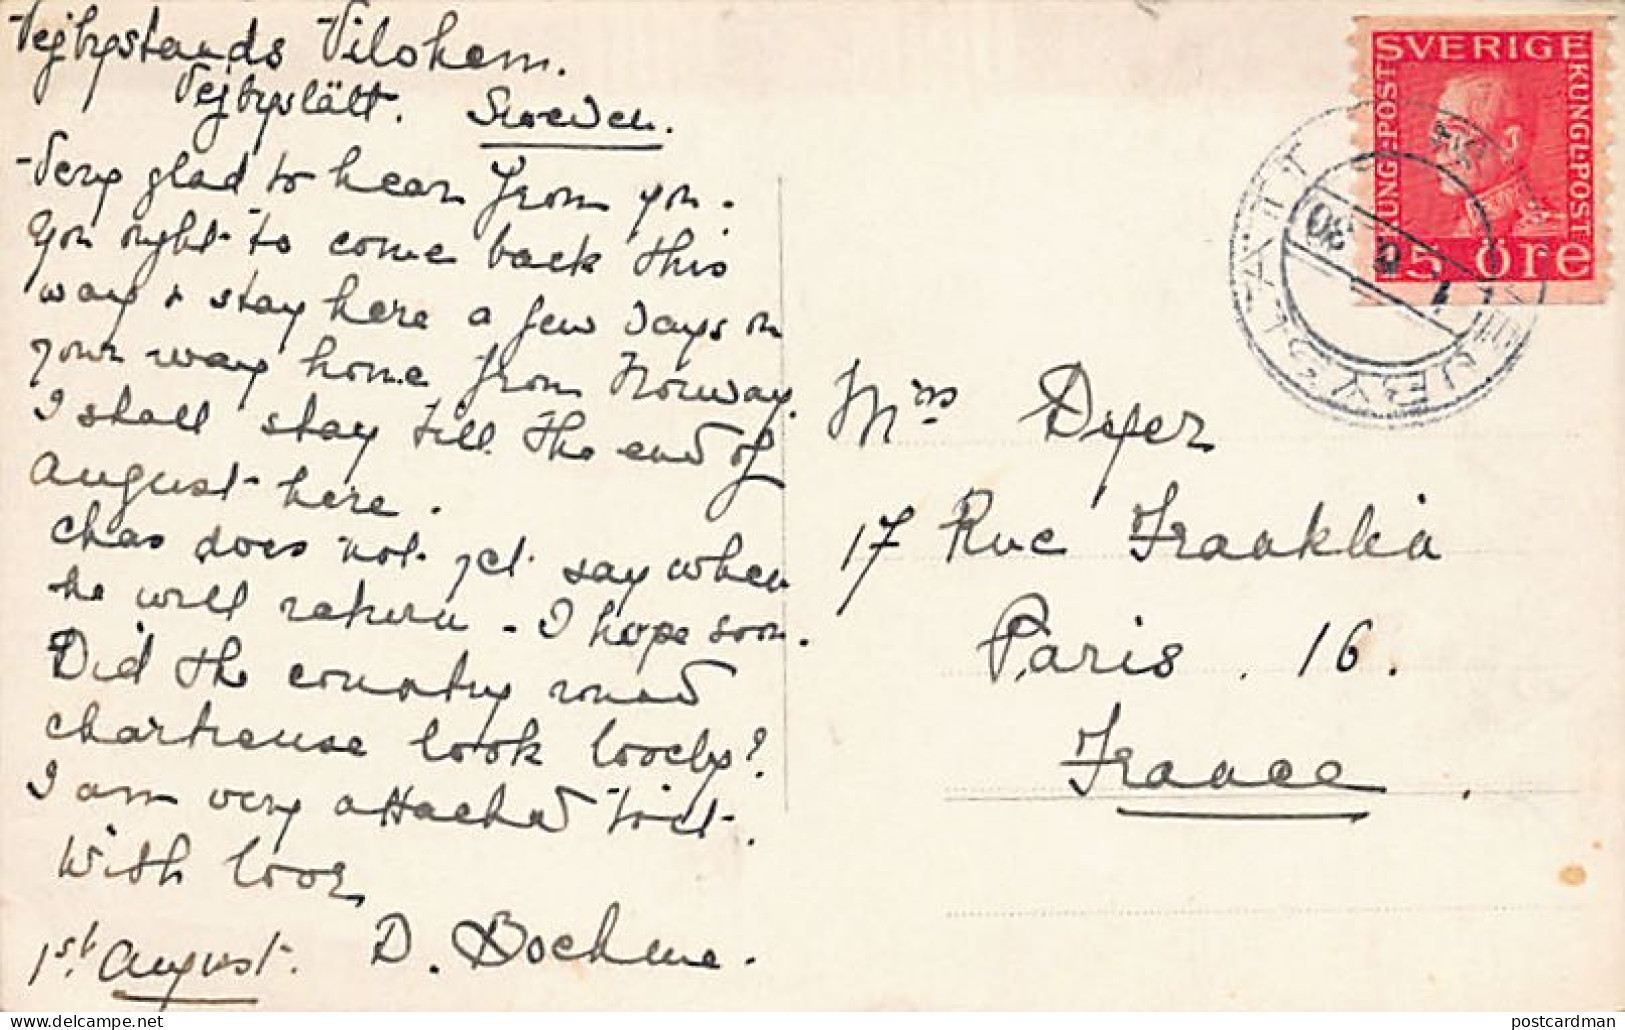 Vejbystrands Vilohem.
Vejbyslätt. Sweden.
Very glad to hear from you.
You ought to come back this
way & stay here a few days on
your way home from Norway.
I shall stay till the end of
August here.
Chas does not yet say when
he will return - I hope soon.
Did the country round
chartreuse look lovely?
I am very attached to it.
With love
D. Boehme.
1st August.
SVERIGE
KUNGL·POST
KUNGL·POST
15 ÖRE
VEJBYSLÄTT
1 8 30
Mrs Dyer
17 Rue Franklin
Paris. 16.
France.
postcardman